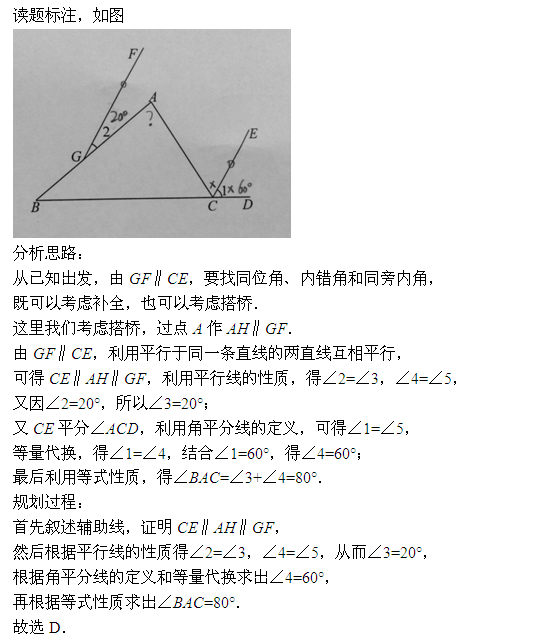 读题标注，如图
F
A
20°
2
?
G
E
x
1
x
60°
B
C
D
分析思路：
从已知出发，由 GF∥CE，要找同位角、内错角和同旁内角，
既可以考虑补全，也可以考虑搭桥．
这里我们考虑搭桥，过点 A 作 AH∥GF．
由 GF∥CE，利用平行于同一条直线的两直线互相平行，
可得 CE∥AH∥GF，利用平行线的性质，得∠2=∠3，∠4=∠5，
又因∠2=20°，所以∠3=20°；
又 CE 平分∠ACD，利用角平分线的定义，可得∠1=∠5，
等量代换，得∠1=∠4，结合∠1=60°，得∠4=60°；
最后利用等式性质，得∠BAC=∠3+∠4=80°．
规划过程：
首先叙述辅助线，证明 CE∥AH∥GF，
然后根据平行线的性质得∠2=∠3，∠4=∠5，从而∠3=20°，
根据角平分线的定义和等量代换求出∠4=60°，
再根据等式性质求出∠BAC=80°．
故选 D．